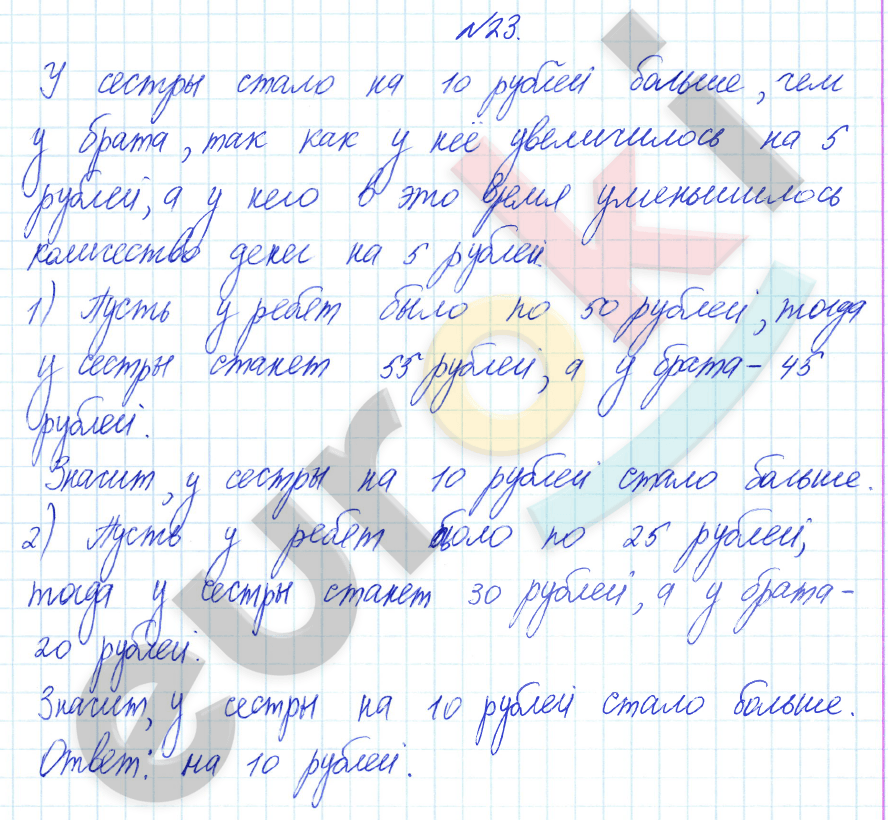 №23.
У сестры стало на 10 рублей больше, чем
у брата, так как у неё увеличилось на 5
рублей, а у него в это время уменьшилось
количество денег на 5 рублей.
1) Пусть у ребят было по 50 рублей, тогда
у сестры станет 55 рублей, а у брата – 45
рублей.
Значит, у сестры на 10 рублей стало больше.
2) Пусть у ребят было по 25 рублей,
тогда у сестры станет 30 рублей, а у брата –
20 рублей.
Значит, у сестры на 10 рублей стало больше.
Ответ: на 10 рублей.
euroki